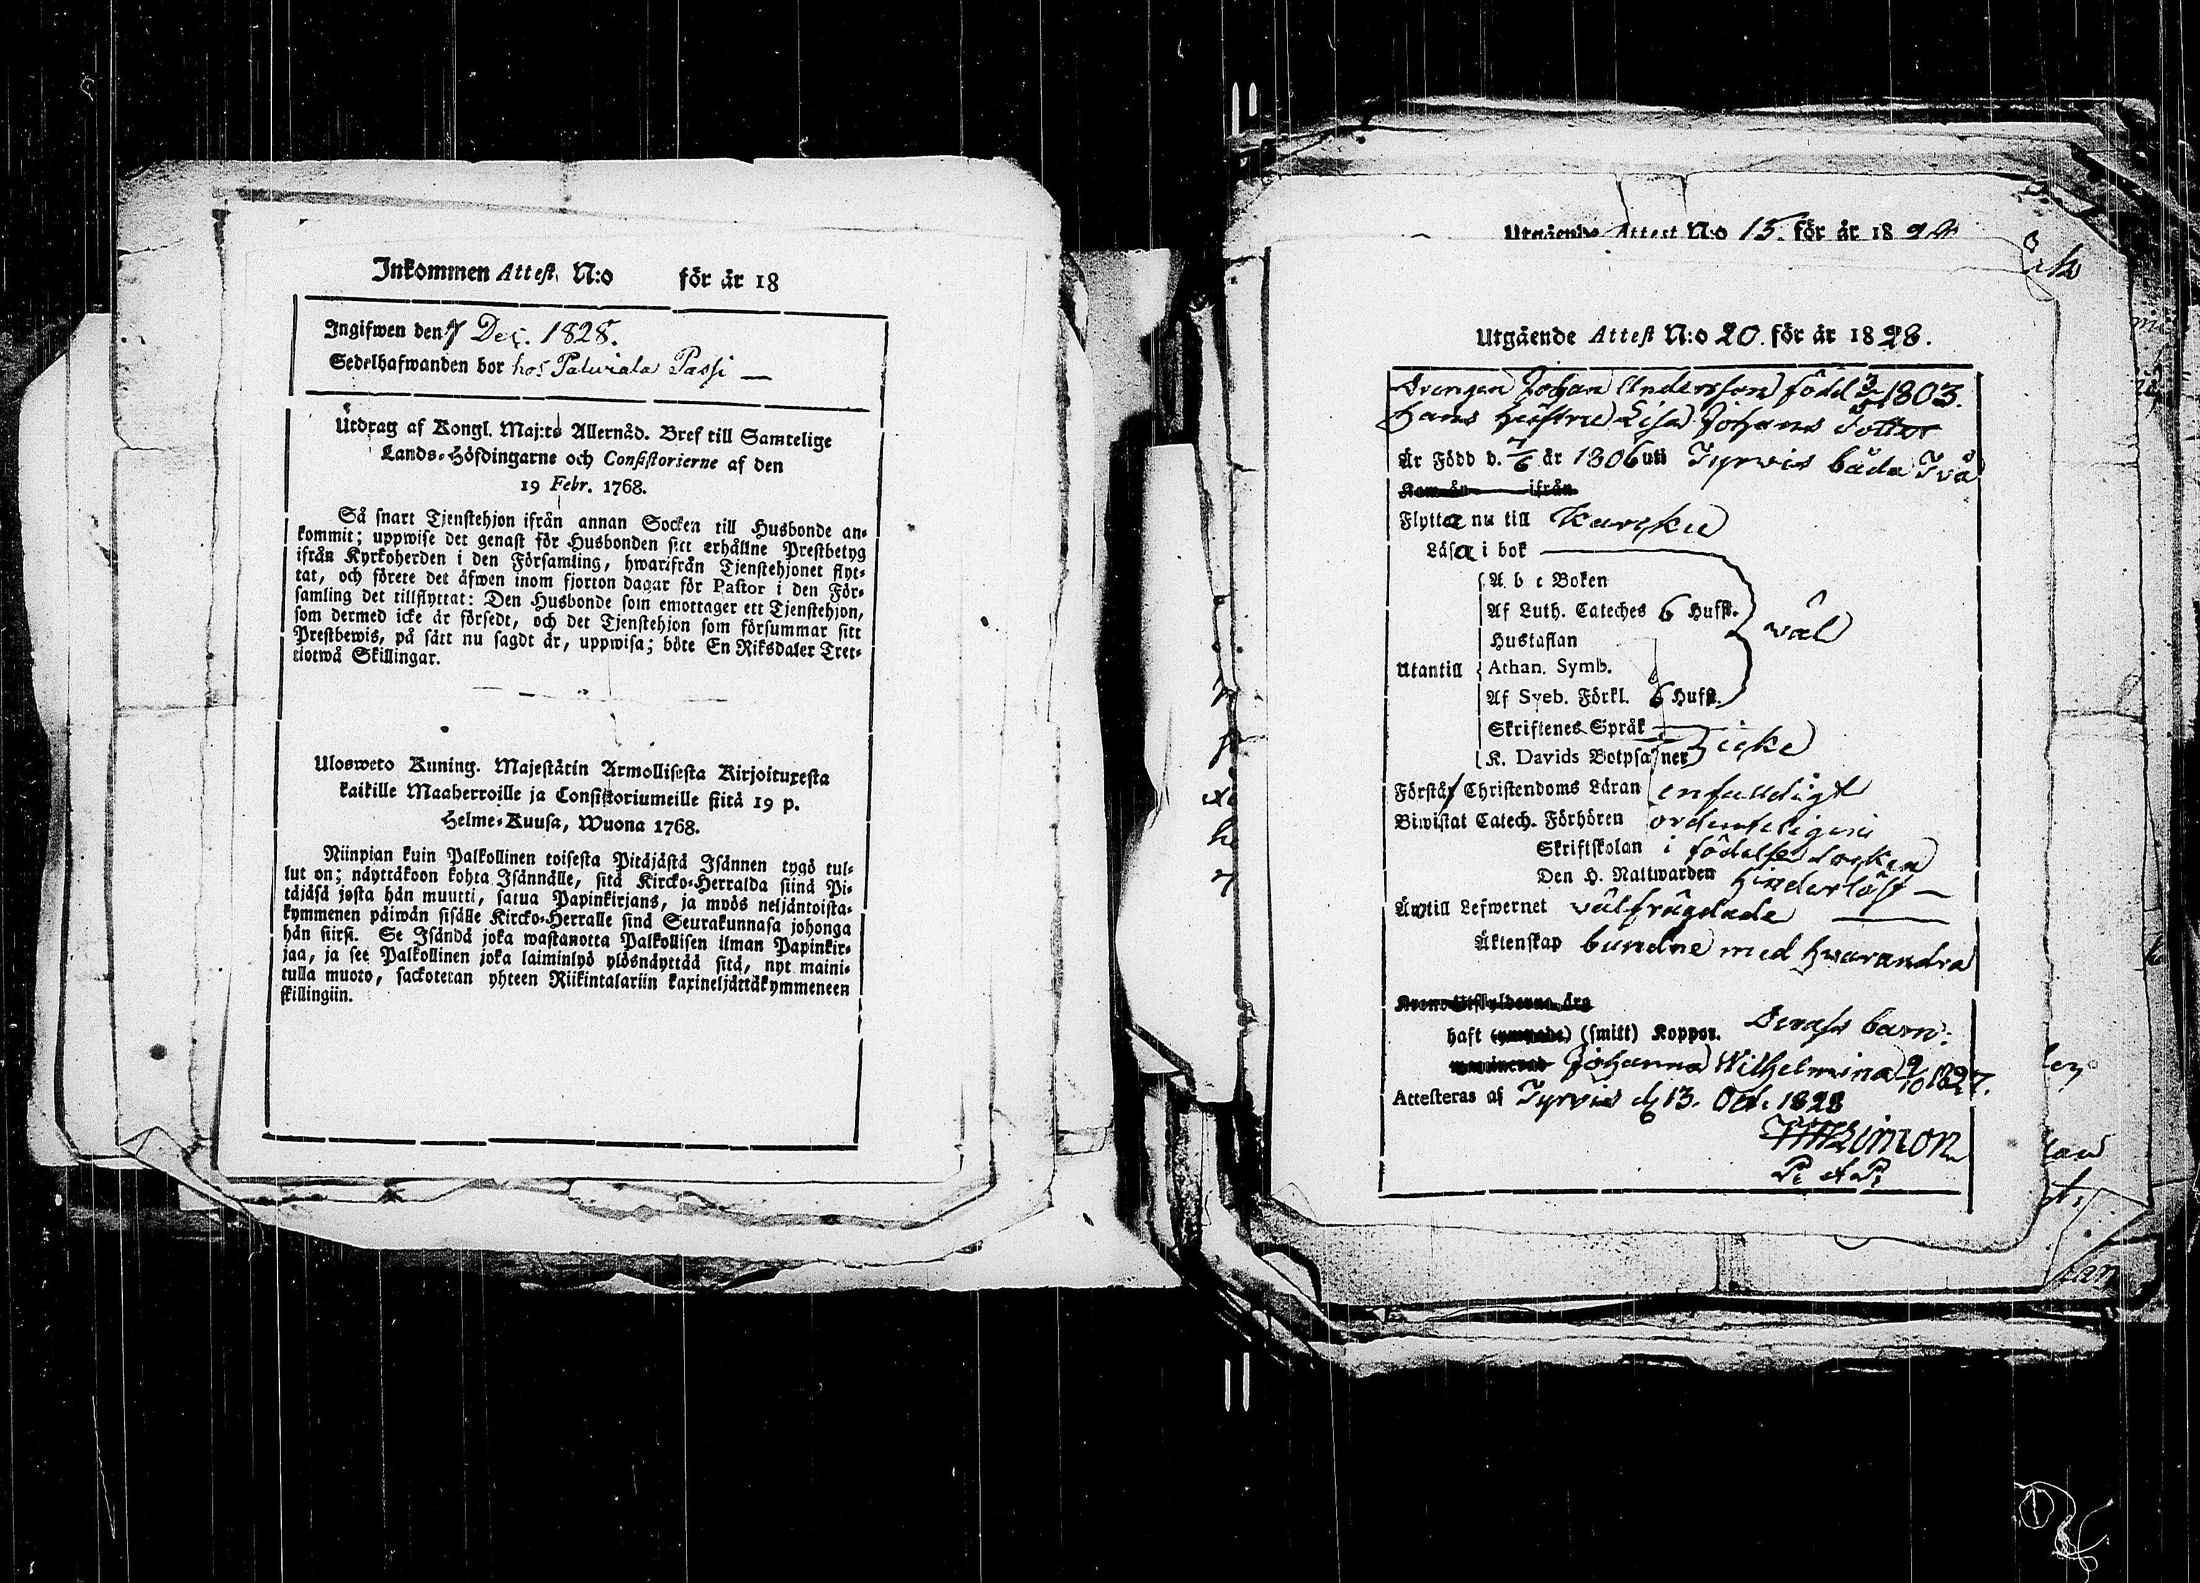 Inkommen Attest N:o för år 18
Ingifwen den 7 Dec. 1828.
Sedelhafwanden bor hos Paluiala Passi —
Utdrag af Kongl. Maj:ts Allernåd. Bref till Samtelige
Lands-Höfdingarne och Consistorierne af den
19 Febr. 1768.
Så snart Tjenstehjon ifrån annan Socken till Husbonde an-
kommit; uppwise det genast för Husbonden sitt erhållne Prestbetyg
ifrån Kyrkoherden i den Församling, hwarifrån Tjenstehjonet flyt-
tat, och förete det äfwen inom fjorton dagar för Pastor i den För-
samling det tillflyttat: Den Husbonde som emottager ett Tjenstehjon,
som dermed icke är försedt, och det Tjenstehjon som försummar sitt
Prestbewis, på sätt nu sagdt är, uppwisa; böte En Riksdaler Tret-
tiotwå Skillingar.
Ulosweto Kuning. Majestätin Armollisesta Kirjoituxesta
kaikille Maaherroille ja Consistoriumeille siitä 19 p.
Helme-Kuusa, Wuona 1768.
Niinpian kuin Palkollinen toisesta Pitäjästä Isännen tygö tul-
lut on; näyttäkoon kohta Isännälle, sitä Kircko-Herralda siinä Pi-
täjäsä josta hän muutti, satua Papinkirjans, ja myös neljäntoista-
kymmenen päiwän sisälle Kircko-Herralle siinä Seurakunnasa johonga
hän siirsi. Se Isändä joka wastanotta Palkollisen ilman Papinkir-
jaa, ja see Palkollinen joka laiminlyö ylösnäyttää sitä, nyt maini-
tulla muoto, sackotetan yhteen Riikintalariin kaxineljättäkymmeneen
skillingiin.
Utgående Attest N:o 15. för år 18
Utgående Attest N:o 20. för år 1828.
Drengen Johan Andersson född 3/ 1803.
Hans Hustru Lisa Johans dotter
Är Född d. 7/6 år 1806 uti Tyrvis båda Två
Kom år ifrån
Flytta nu till Karcku
Läsa i bok
A b c Boken
Af Luth. Cateches 6 Hufst.
Hustaflan
wäl
Utantill Athan. Symb.
Af Sveb. Förkl. 6 Hufst.
Skriftenes Språk
K. Davids Botpsalmer icke
Förstår Christendoms Läran enfalldigt
Biwistat Catech. Förhören ordenteligen
Skriftskolan i födelse Socken
Den H. Nattwarden hinderlöst —
Äro till Lefwernet wälfrägdade —
Äktenskap bundne med hwarandra
Krono-Utskylderna äro
haft (ympade) (smitt) Koppor. Deras barn:
vaccinerad Johanna Wilhelmina 9/10 1827.
Attesteras af Tyrvis d. 13. Oct. 1828
Limon
P. A. P.